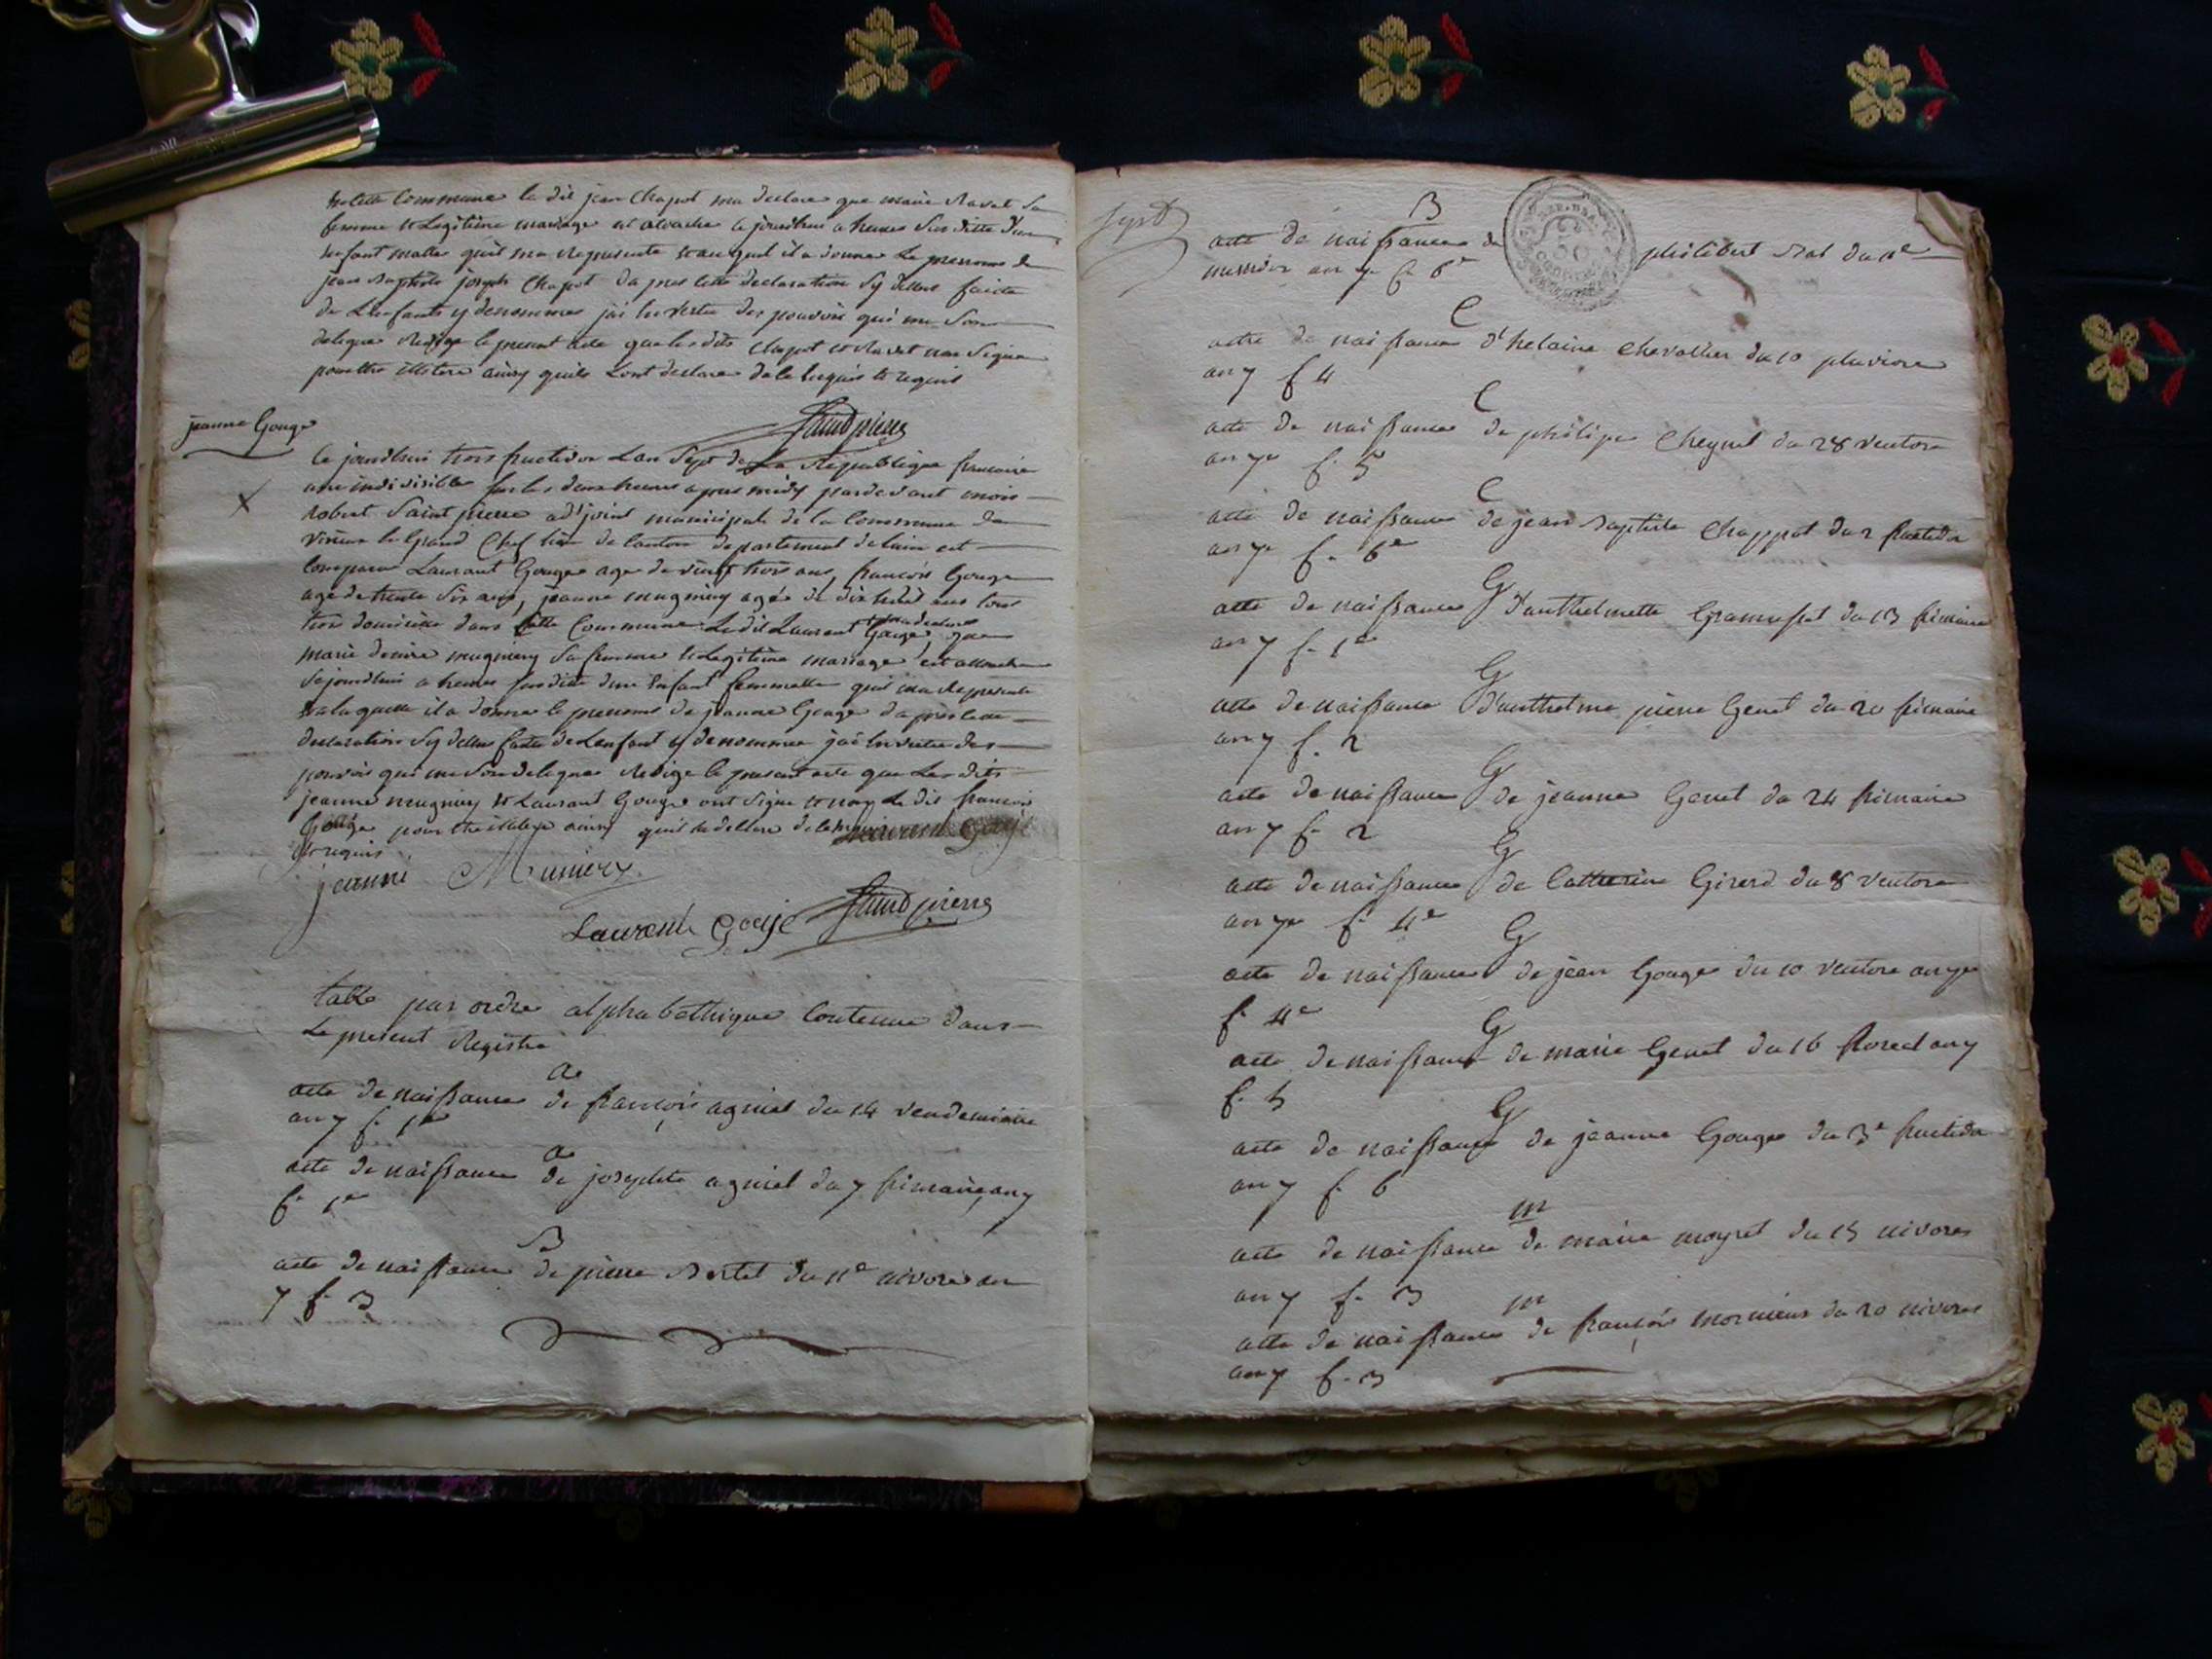 cette Commune le dit jean Chapot ma declare que marie Ravet sa
femme de Legitime mariage est acouche ce jourdhui a heure sus ditte d'un
enfant malle quil ma Represente et auquel il a donne Le prenoms de
jean Baptiste joseph Chapot da pres cette declaration Sy dessus faitte
de Lenfants y denommes jai En vertu des pouvoirs qui me Sont
delegues Redige le present acte que les dits Chapot et Ravet non Signe
pour être illetere ainsy quils Lont declare de ce Enquis et requis
Saint pierre
jeanne Gouge
Ce jourdhui trois fructidor Lan Sept de La Republique francaise
une indivisible sur les deux heures apres midy pardevant mois
Robert Saint pierre ad'joint municipale de la Commune de
virieu le Grand Chef lieu de Canton departement de lain est
Comparu Laurant Gouge age de vingt trois ans, francois Gouge
age de trente Six ans, jeanne mugniery agée de dix huit ans tous
trois domicilies dans cette Commune Le dit Laurant Gouge, ma declare que
marie mugniery Sa femme de Legitime mariage est accouche
Sejourdhui a heure susdite dune Enfant femmelle quil ma Represente
et a laquelle il a donne le prenoms de jeanne Gouge da pres cette
declaration Sy dessus faite de Lenfant y denommee jai En vertu des
pouvoirs qui me Son delegues Redige le present acte que Les dits
jeanne mugniery et Laurant Gouge ont Signe et non Le dit francois
Gouge pour être illetere ainsy quil la declare de ce
Et requis
jeanne Muniery
Laurent Gouje Saint pierre
table par ordre alphabethique Contenue dans
Le present Registre
a
acte de naissance de francois agniel du 14 vendemiaire
an 7 f. 1er
a
acte de naissance de josephte agniel du 7 frimaire an 7
f. 1er
B
acte de naissance de pierre Bertet du 11e nivose an
7 f. 3
Sept
B
acte de naissance de philibert Bal du 1e
messidor an 7e f. 6e
C
acte de naissance d'helaine Chevallier du 10 pluviose
an 7 f 4
C
acte de naissance de philipe Cheynel du 28 ventose
an 7e f. 5
C
acte de naissance de jean Baptiste Chappot du 2 fructidor
an 7e f. 6e
G
acte de naissance d'anthelmette Gramusset du 13 frimaire
an 7 f. 1er
G
acte de naissance d'anthelme pierre Genet du 20 frimaire
an 7 f. 2
G
acte de naissance de jeanne Genet du 24 frimaire
an 7 f. 2
G
acte de naissance de Catherine Girerd du 8 ventose
an 7e f. 4e
G
acte de naissance de jean Gouge du 10 ventose an 7e
f. 4e
G
acte de naissance de marie Genet du 16 floreal an 7
f. 5
G
acte de naissance de jeanne Gouge du 3e fructidor
an 7 f. 6
m
acte de naissance de marie moyret du 15 nivose
an 7 f. 3
m
acte de naissance de françois mornieux du 20 nivose
an 7 f. 3